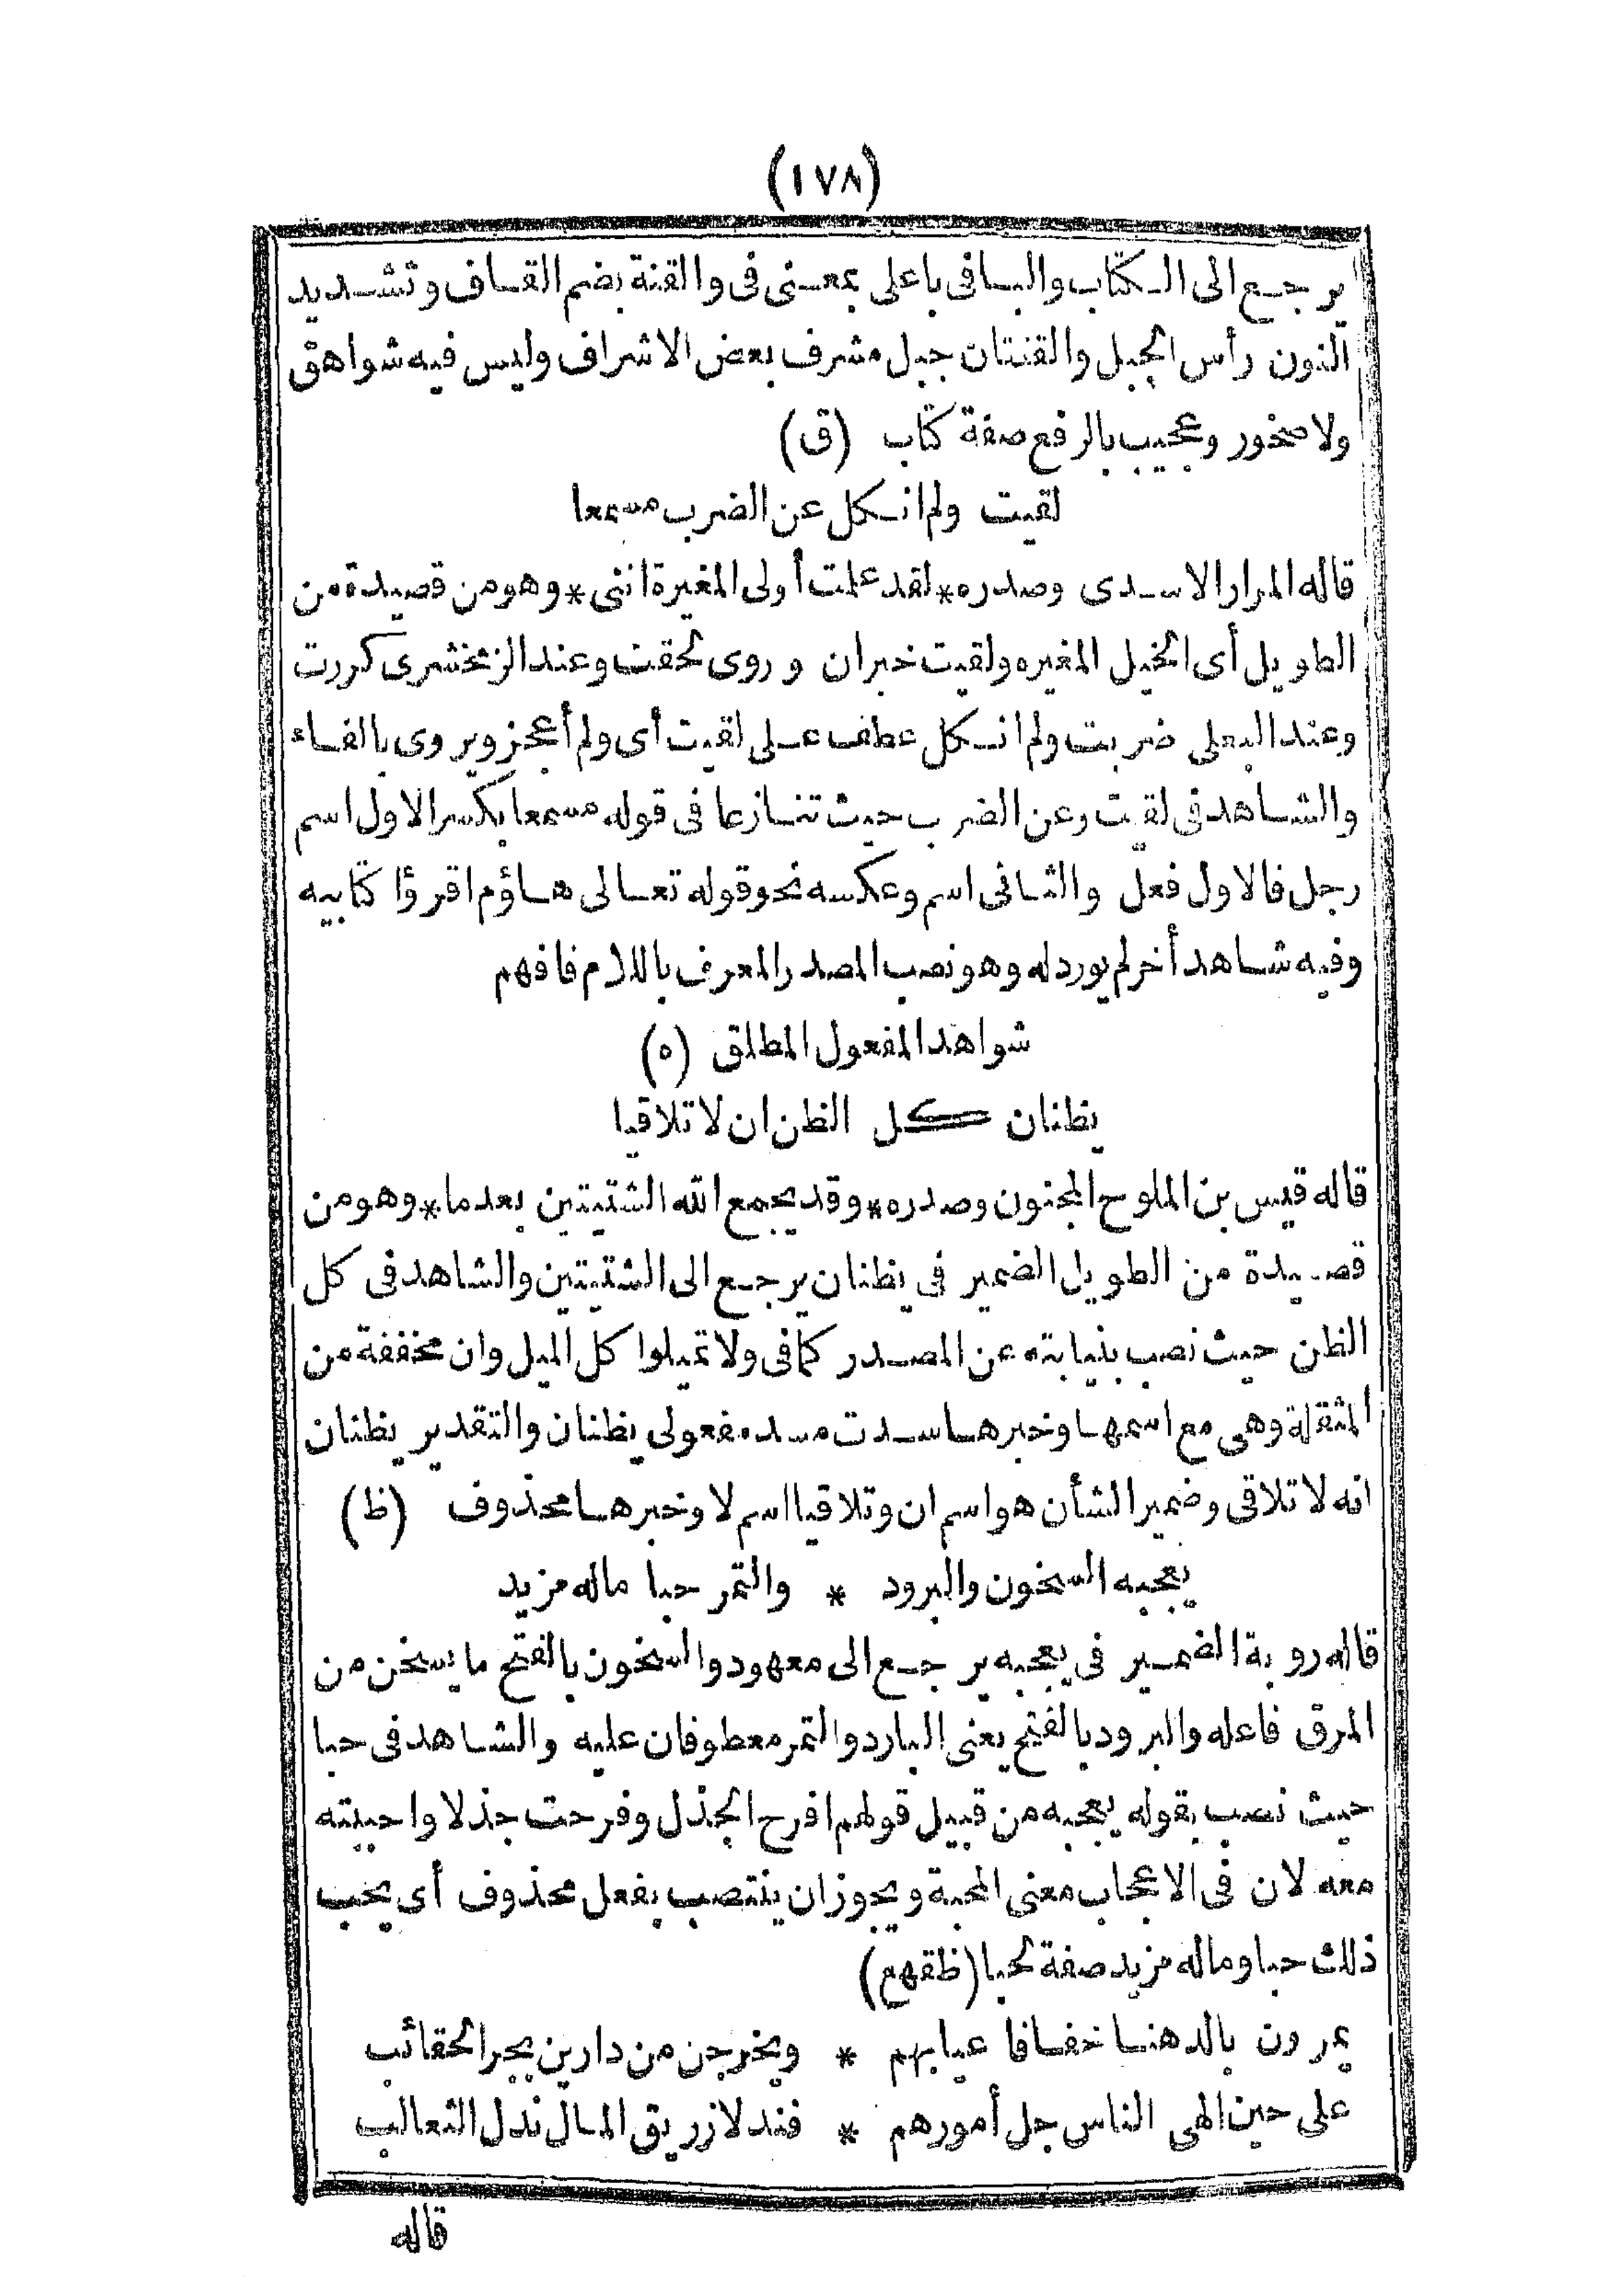 (١٧٨)
يرجع الى الكتاب والبا فى باعلى بمعنى فى والقنة بضم القاف وتشديد
النون رأس الجبل والقنتان جبل مشرف بعض الاشراف وليس فيه شواهق
ولا صخور وعجيب بالرفع صفة كتاب (ق)
لقيت ولم انكل عن الضرب مسمعا
قاله المرار الاسدى وصدره * لقد علمت أولى المغيرة اننى * وهو من قصيدة من
الطويل أى الخيل المغيره ولقيت خبران وروى لحقت وعند الزمخشرى كررت
وعند البعلى ضربت ولم انكل عطف على لقيت أى ولم أعجز ويروى بالفاء
والشاهد فى لقيت وعن الضرب حيث تنازعا فى قوله مسمعا بكسر الاول اسم
رجل فالاول فعل والثانى اسم وعكسه نحو قوله تعالى هاؤم اقرؤا كتابيه
وفيه شاهد أخر لم يورد له وهو نصب المصدر المعرف باللام فافهم
شواهد المفعول المطلق (ه)
يظنان كل الظن ان لا تلاقيا
قاله قيس بن الملوح المجنون وصدره * وقد يجمع الله الشتيتين بعدما * وهو من
قصيدة من الطويل الضمير فى يظنان يرجع الى الشتيتين والشاهد فى كل
الظن حيث نصب بنيابته عن المصدر كما فى ولا تميلوا كل الميل وان مخففة من
المثقلة وهى مع اسمها وخبرها سدت مسد مفعولى يظنان والتقدير يظنان
انه لا تلاقى وضمير الشأن هو اسم ان وتلاقيا اسم لا وخبرها محذوف (ظ)
يعجبه السخون والبرود * والتمر حبا ماله مزيد
قاله روبة الضمير فى يعجبه يرجع الى معهود والسخون بالفتح ما يسخن من
المرق فاعله والبرود بالفتح يعنى البارد والتمر معطوفان عليه والشاهد فى حبا
حيث نصب بقوله يعجبه من قبيل قولهم افرح الجذل وفرحت جذلا واحببته
معه لان فى الاعجاب معنى المحبة ويجوز ان ينتصب بفعل محذوف أى يحب
ذلك حبا وماله مزيد صفة لحبا (ظقهع)
يمرون بالدهنا خفافا عيابهم * ويخرجن من دارين بجر الحقائب
على حين الهى الناس جل أمورهم * فندلا زريق المال ندل الثعالب
قاله